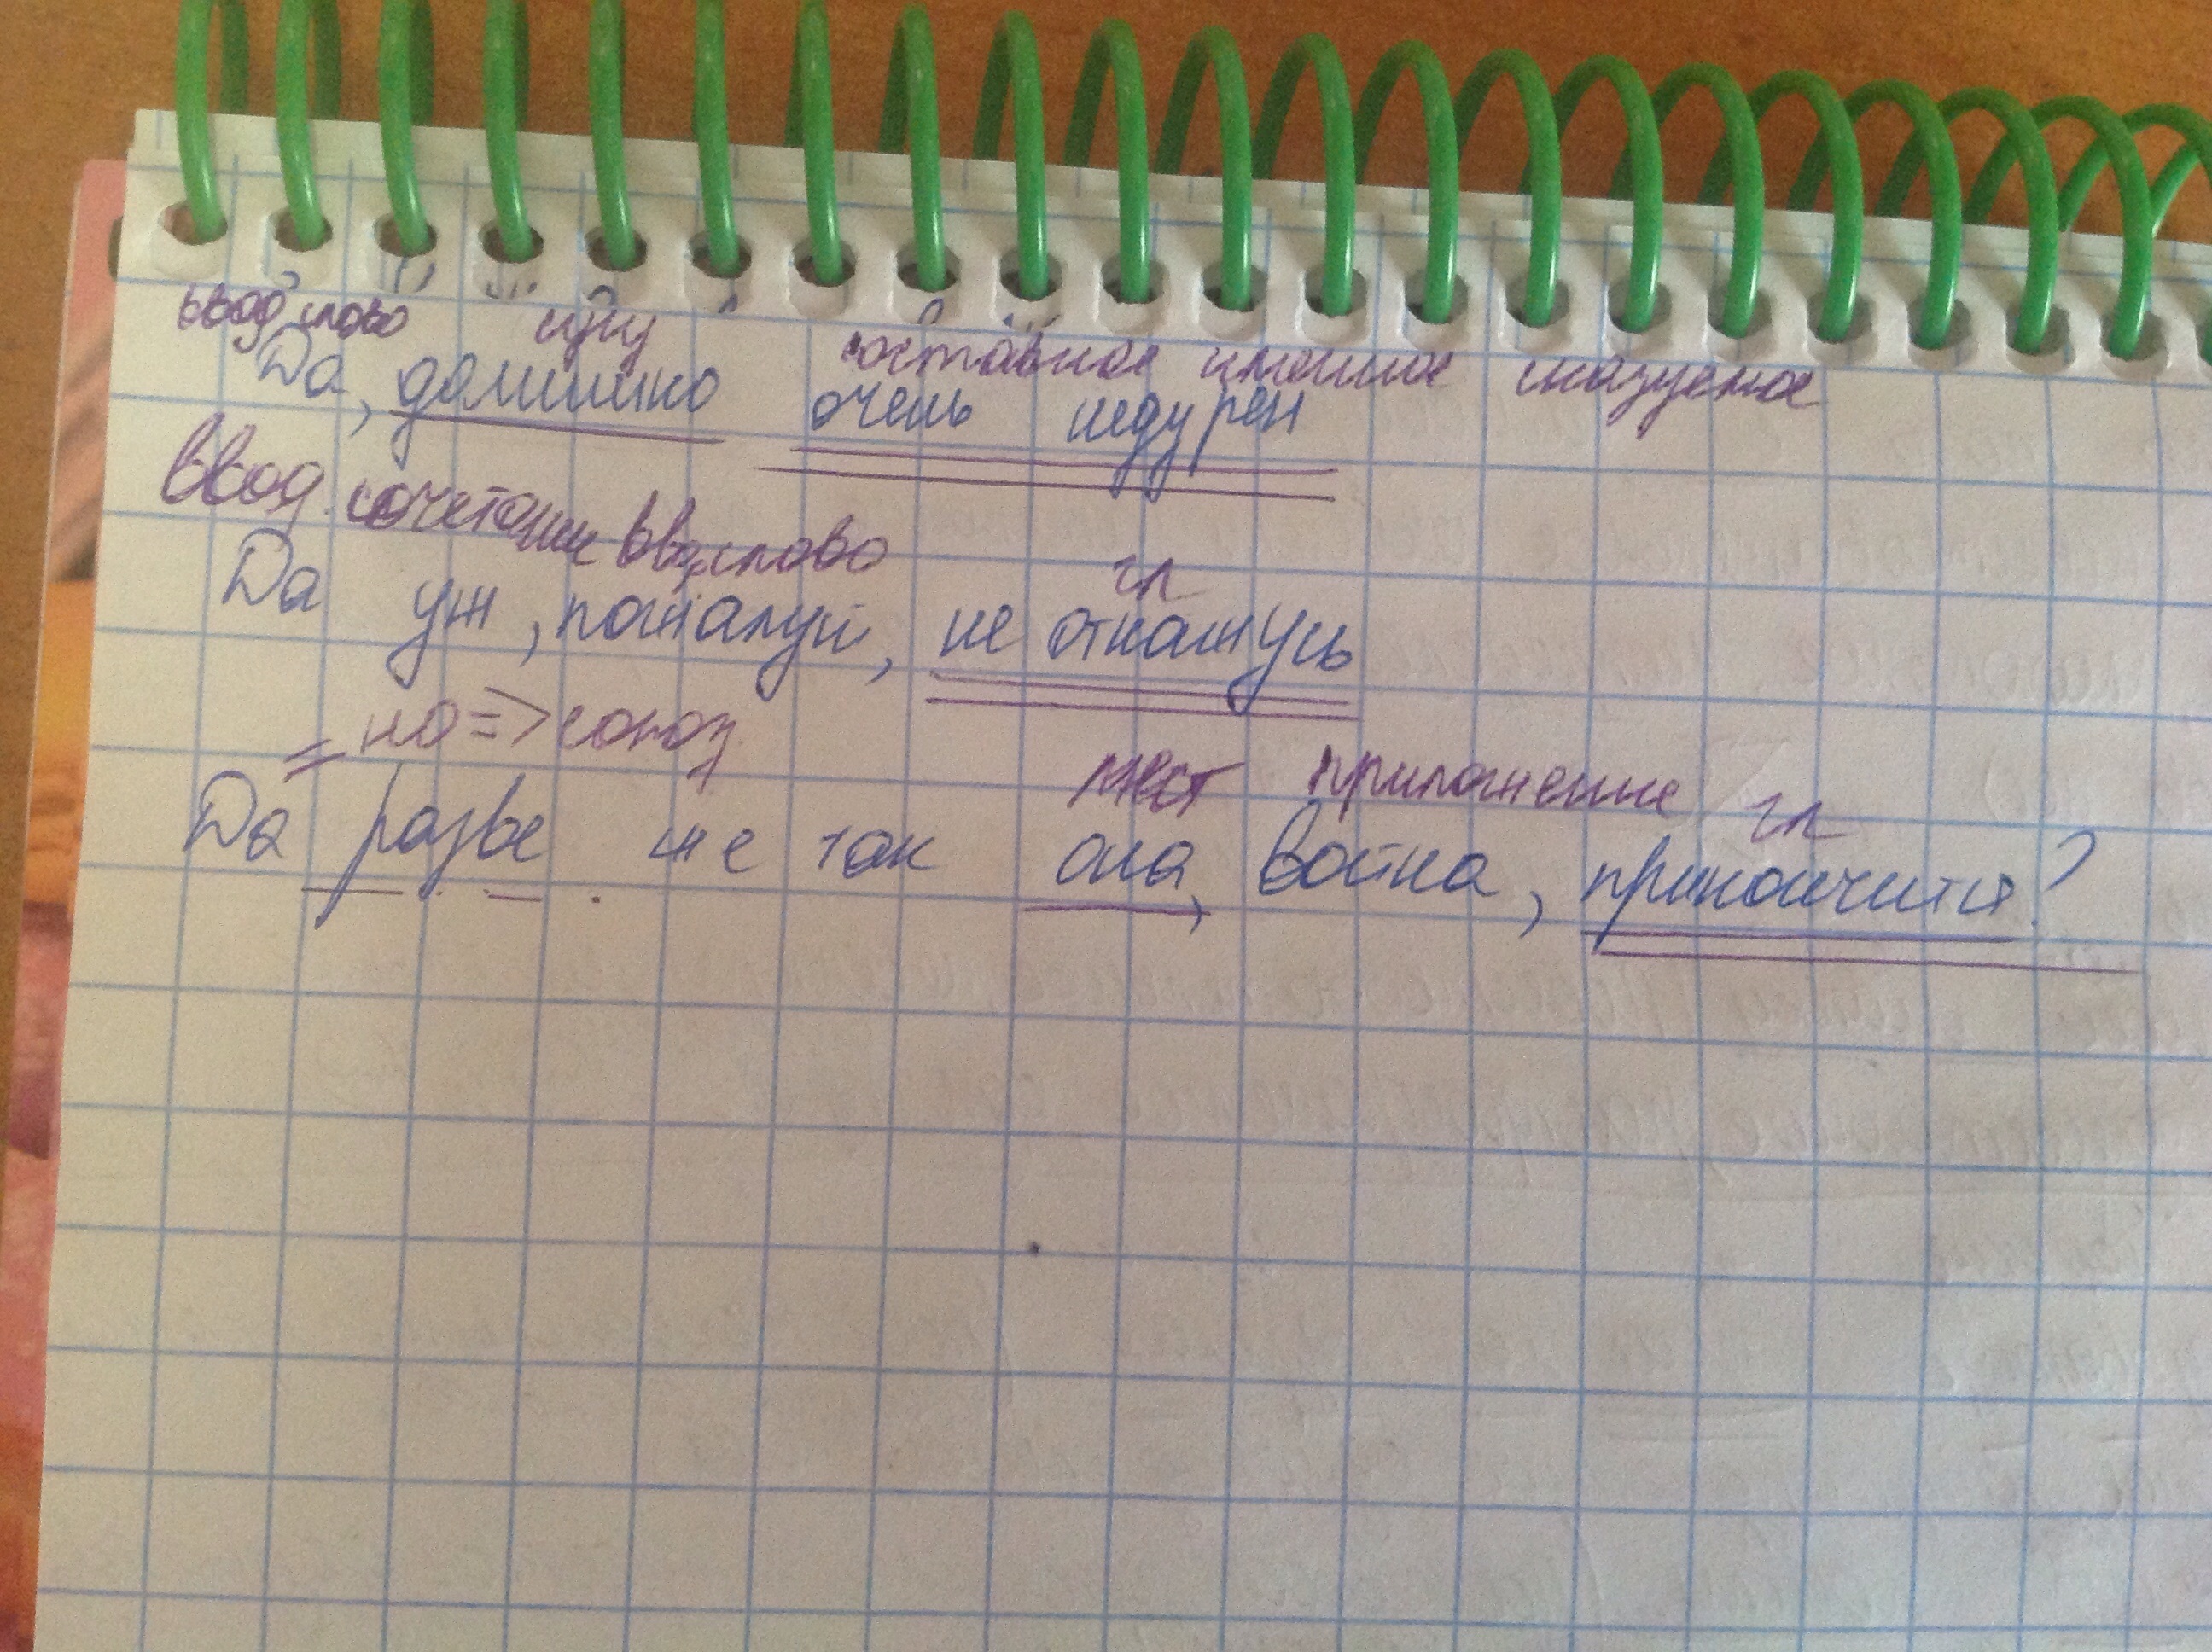 ввод слово сущ составное именное сказуемое
Да, домишко очень недурен
ввод. сочетание вв. слово гл
Да уж, пожалуй, не откажусь
= но => союз мест приложение гл
Да разве же так она, война, прикончится?